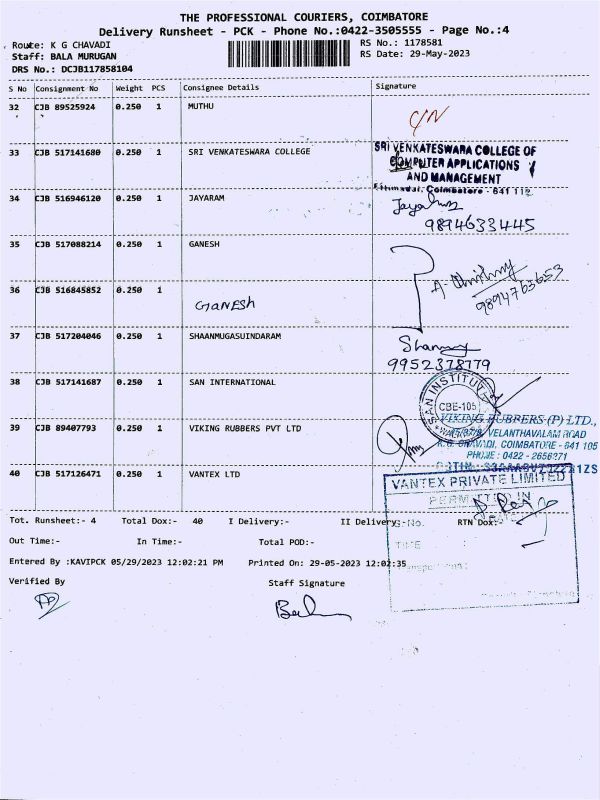 THE PROFESSIONAL COURIERS, COIMBATORE
Delivery Runsheet - PCK - Phone No.:0422-3505555 - Page No.:4
Route: K G CHAVADI
RS No.: 1178581
Staff: BALA MURUGAN
RS Date: 29-May-2023
DRS No.: DCJB117858104
S No Consignment No Weight PCS Consignee Details Signature
32 CJB 89525924 0.250 1 MUTHU
33 CJB 517141680 0.250 1 SRI VENKATESWARA COLLEGE
SRI VENKATESWARA COLLEGE OF
COMPUTER APPLICATIONS
AND MANAGEMENT
Ettimadai, Coimbatore - 641 112
34 CJB 516946120 0.250 1 JAYARAM
9894633445
35 CJB 517088214 0.250 1 GANESH
36 CJB 516845852 0.250 1 GANESh
37 CJB 517204046 0.250 1 SHAANMUGASUINDARAM
9952378779
38 CJB 517141687 0.250 1 SAN INTERNATIONAL
SAN INSTITUT
CBE-105
39 CJB 89407793 0.250 1 VIKING RUBBERS PVT LTD
VIKING RUBBERS (P) LTD.,
VELANTHAVALAM ROAD
K.G. CHAVADI, COIMBATORE - 641 105
PHONE : 0422 - 2656371
40 CJB 517126471 0.250 1 VANTEX LTD
VANTEX PRIVATE LIMITED
PERMITTED IN
Tot. Runsheet:- 4 Total Dox:- 40 I Delivery:- II Delivery:- RTN Dox:-
Out Time:- In Time:- Total POD:-
TIME :
Entered By :KAVIPCK 05/29/2023 12:02:21 PM Printed On: 29-05-2023 12:02:35
Verified By Staff Signature